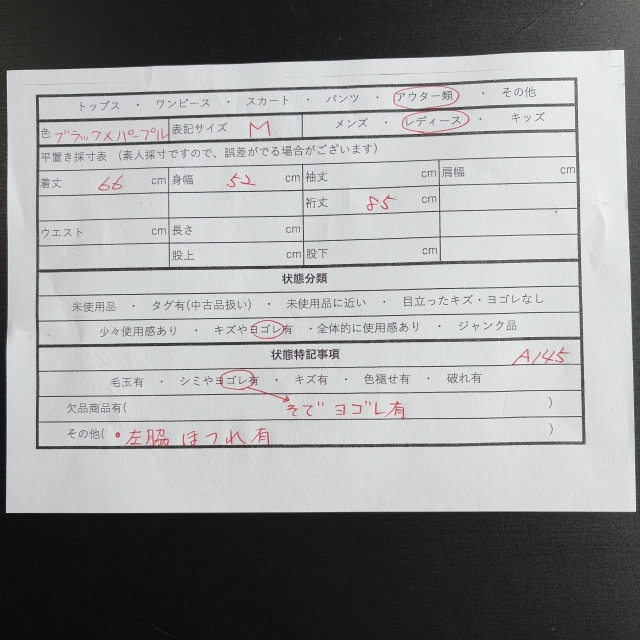 トップス ・ ワンピース ・ スカート ・ パンツ ・ アウター類 ・ その他
色 ブラック×パープル 表記サイズ M メンズ ・ レディース ・ キッズ
平置き採寸表 (素人採寸ですので、誤差がでる場合がございます)
着丈 66 cm 身幅 52 cm 袖丈 cm 肩幅 cm
裄丈 85 cm
ウエスト cm 長さ cm
股上 cm 股下 cm
状態分類
未使用品 ・ タグ有(中古品扱い) ・ 未使用品に近い ・ 目立ったキズ・ヨゴレなし
少々使用感あり ・ キズやヨゴレ有 ・全体的に使用感あり ・ ジャンク品
状態特記事項 A145
毛玉有 ・ シミやヨゴレ有 ・ キズ有 ・ 色褪せ有 ・ 破れ有
欠品商品有( そで ヨゴレ有 )
その他( ・左脇 ほつれ有 )